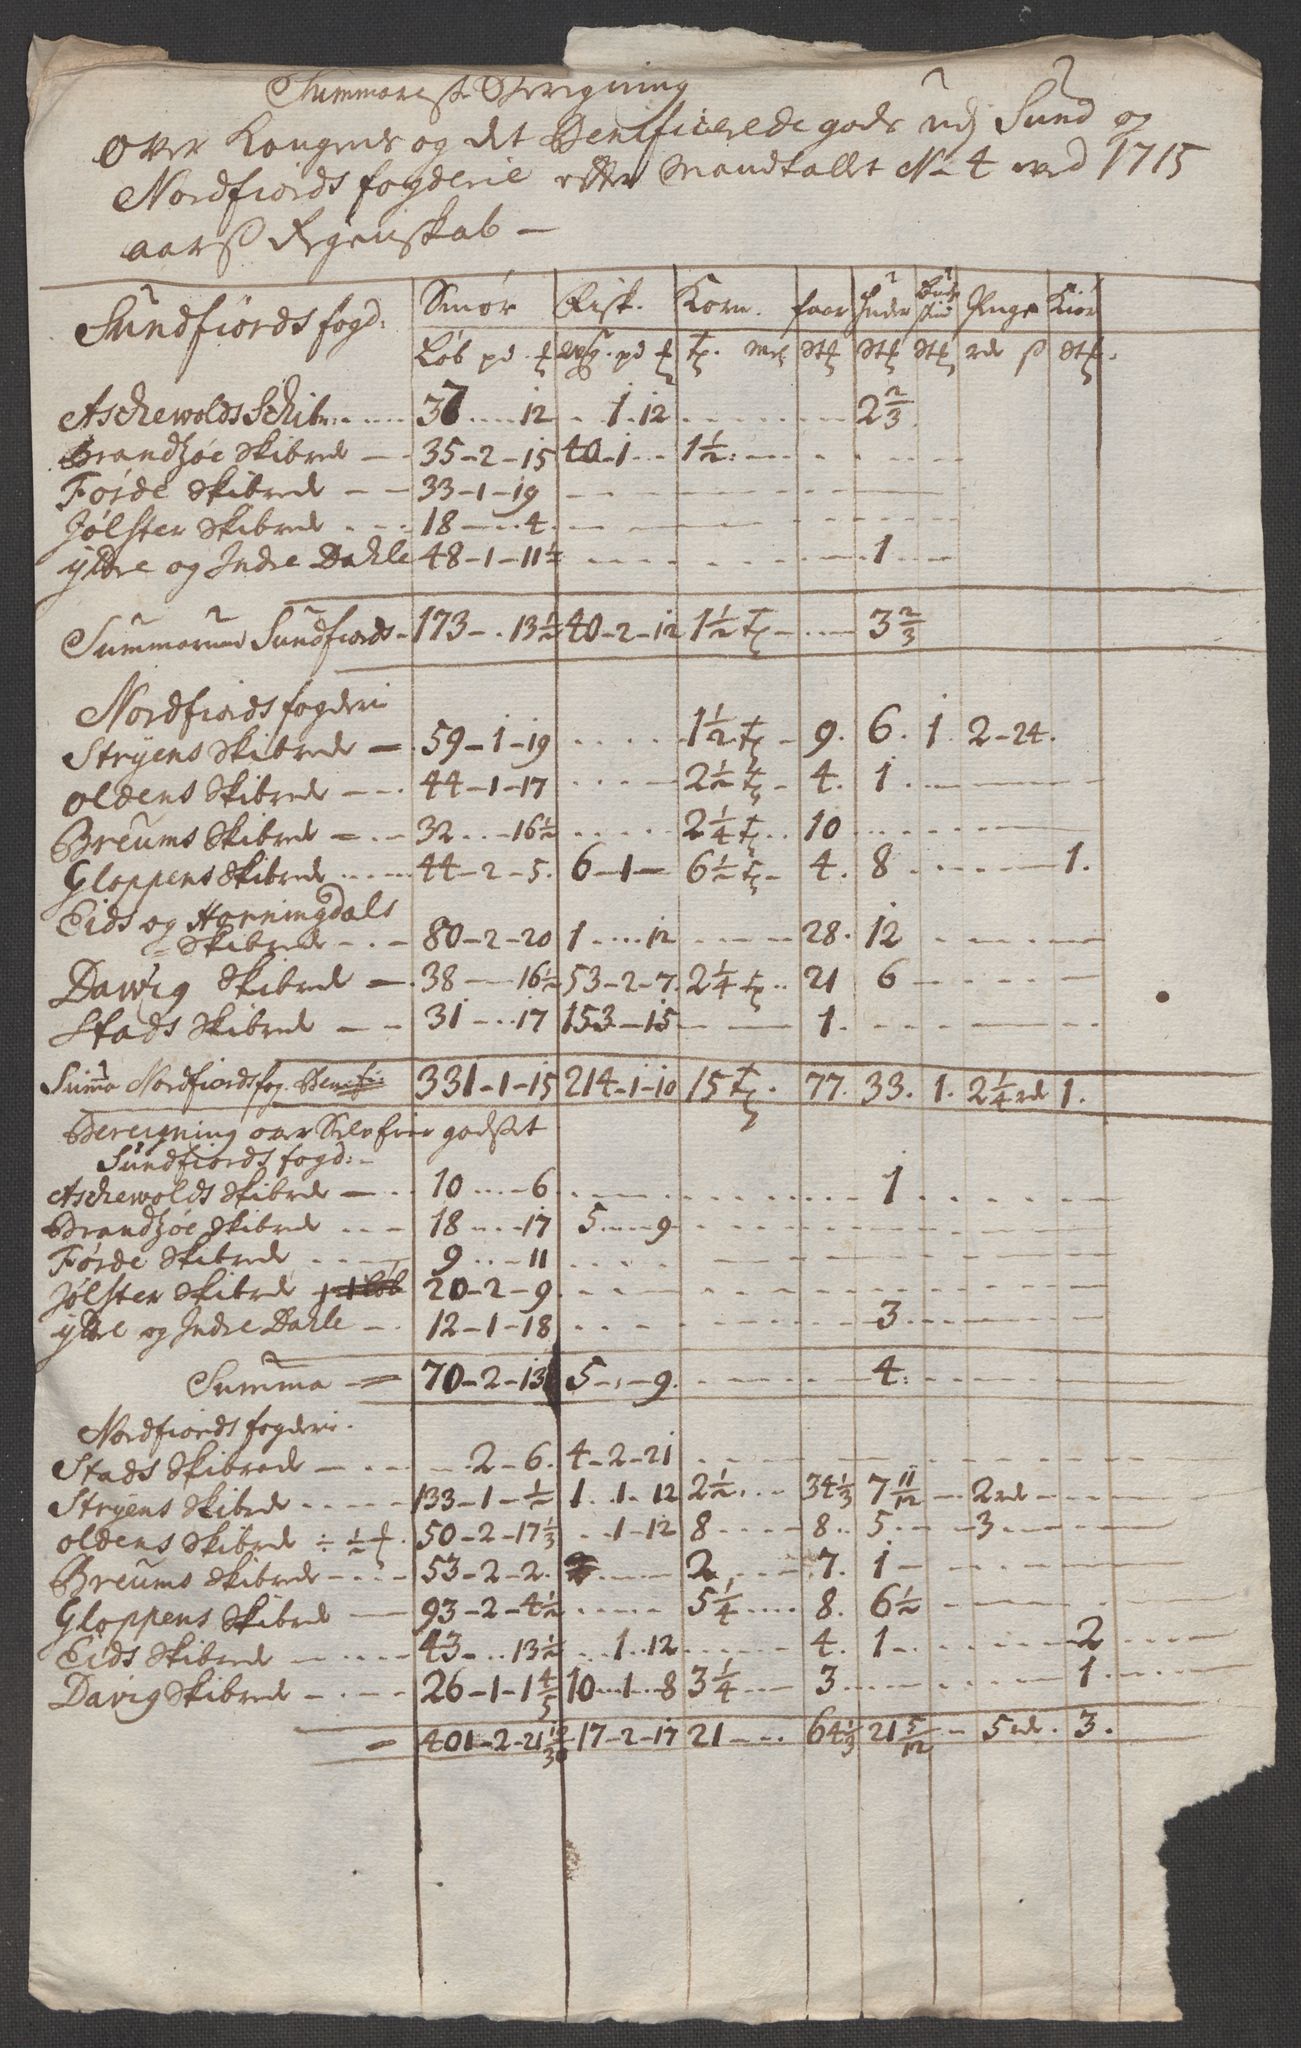 Summarisk Beregning
over Kongens og det Benificerede gods udj Sund og
Nordfiords fogderie efter Mandtallet No 4 ved 1715
aars Regenskab –
Sundfiords fogd: Smør Fisk. Korn. faar Huder Pinge Kiør
Løb pd. ℔ Wog. pd ℔ Tr. Mel Stk Stk Stk rd ß Stk.
Aschewolds Schibr: 37 12 1. 12 2 2/3
Brandzöe Skibrede 35-2-15 40-1 1½
Førde Skibrede 33-1-19
Jølster Skibrede 18 4
ydre og Indre Dahle 48-1-11½ 1
Summarum Sundfiords 173 13½ 40-2-12 1½ Tr 3 2/3
Nordfiords fogderi
Stryens Skibrede 59-1-19 1½ Tr 9. 6. 1. 2-24.
Oldens Skibrede 44-1-17 2½ Tr 4. 1
Breums Skibrede 32 16½ 2¼ Tr 10
Gloppens Skibrede 44-2-5. 6-1 6½ Tr 4. 8 1.
Eids og Horningdals
Skibrede 80-2-20 1 12 28. 12
Davig Skibrede 38 16½ 53-2-7. 2¼ Tr 21 6
Stads Skibrede 31 17 153-15 1.
Summa Nordfiords fog. Benefi: 331-1-15 214-1-10 15 Tr. 77. 33. 1. 2¼ rd 1.
Bereigning over Selv Eier godset
Sundfiords fogd:
Aschewolds Skibrede 10 6 1
Brandzöe Skibrede 18 17 5 9
Førde Skibrede 9 11
Jølster Skibrede 20-2-9
ydre og Indre Dahle 12-1-18 3
Summa 70-2-13 5 9. 4.
Nordfiords fogderie.
Stads Skibrede 2-6. 4-2-21
Stryens Skibrede 133-1-½ 1. 1. 12 2½ 34⅓ 7 11/12 2 rd
oldens Skibrede ÷ ½ ℔. 50-2-17⅓ 1-12 8 8. 5 3
Breums Skibrede 53-2-2. 2 7. 1
Gloppens Skibrede 93-2-4½ 5¼ 8. 6½
Eids Skibrede 43 13½ 1. 12 4. 1 2
Davig Skibrede 26-1-1 4/5 10 1 8 3¼ 3 1.
401-2-21 17-2-17 21 64⅓ 21 5/12 5 rd. 3.